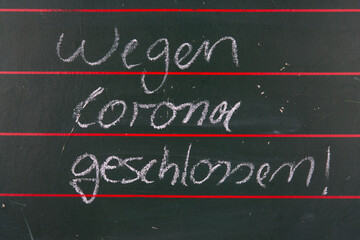 Wegen
Corona
geschlossen!